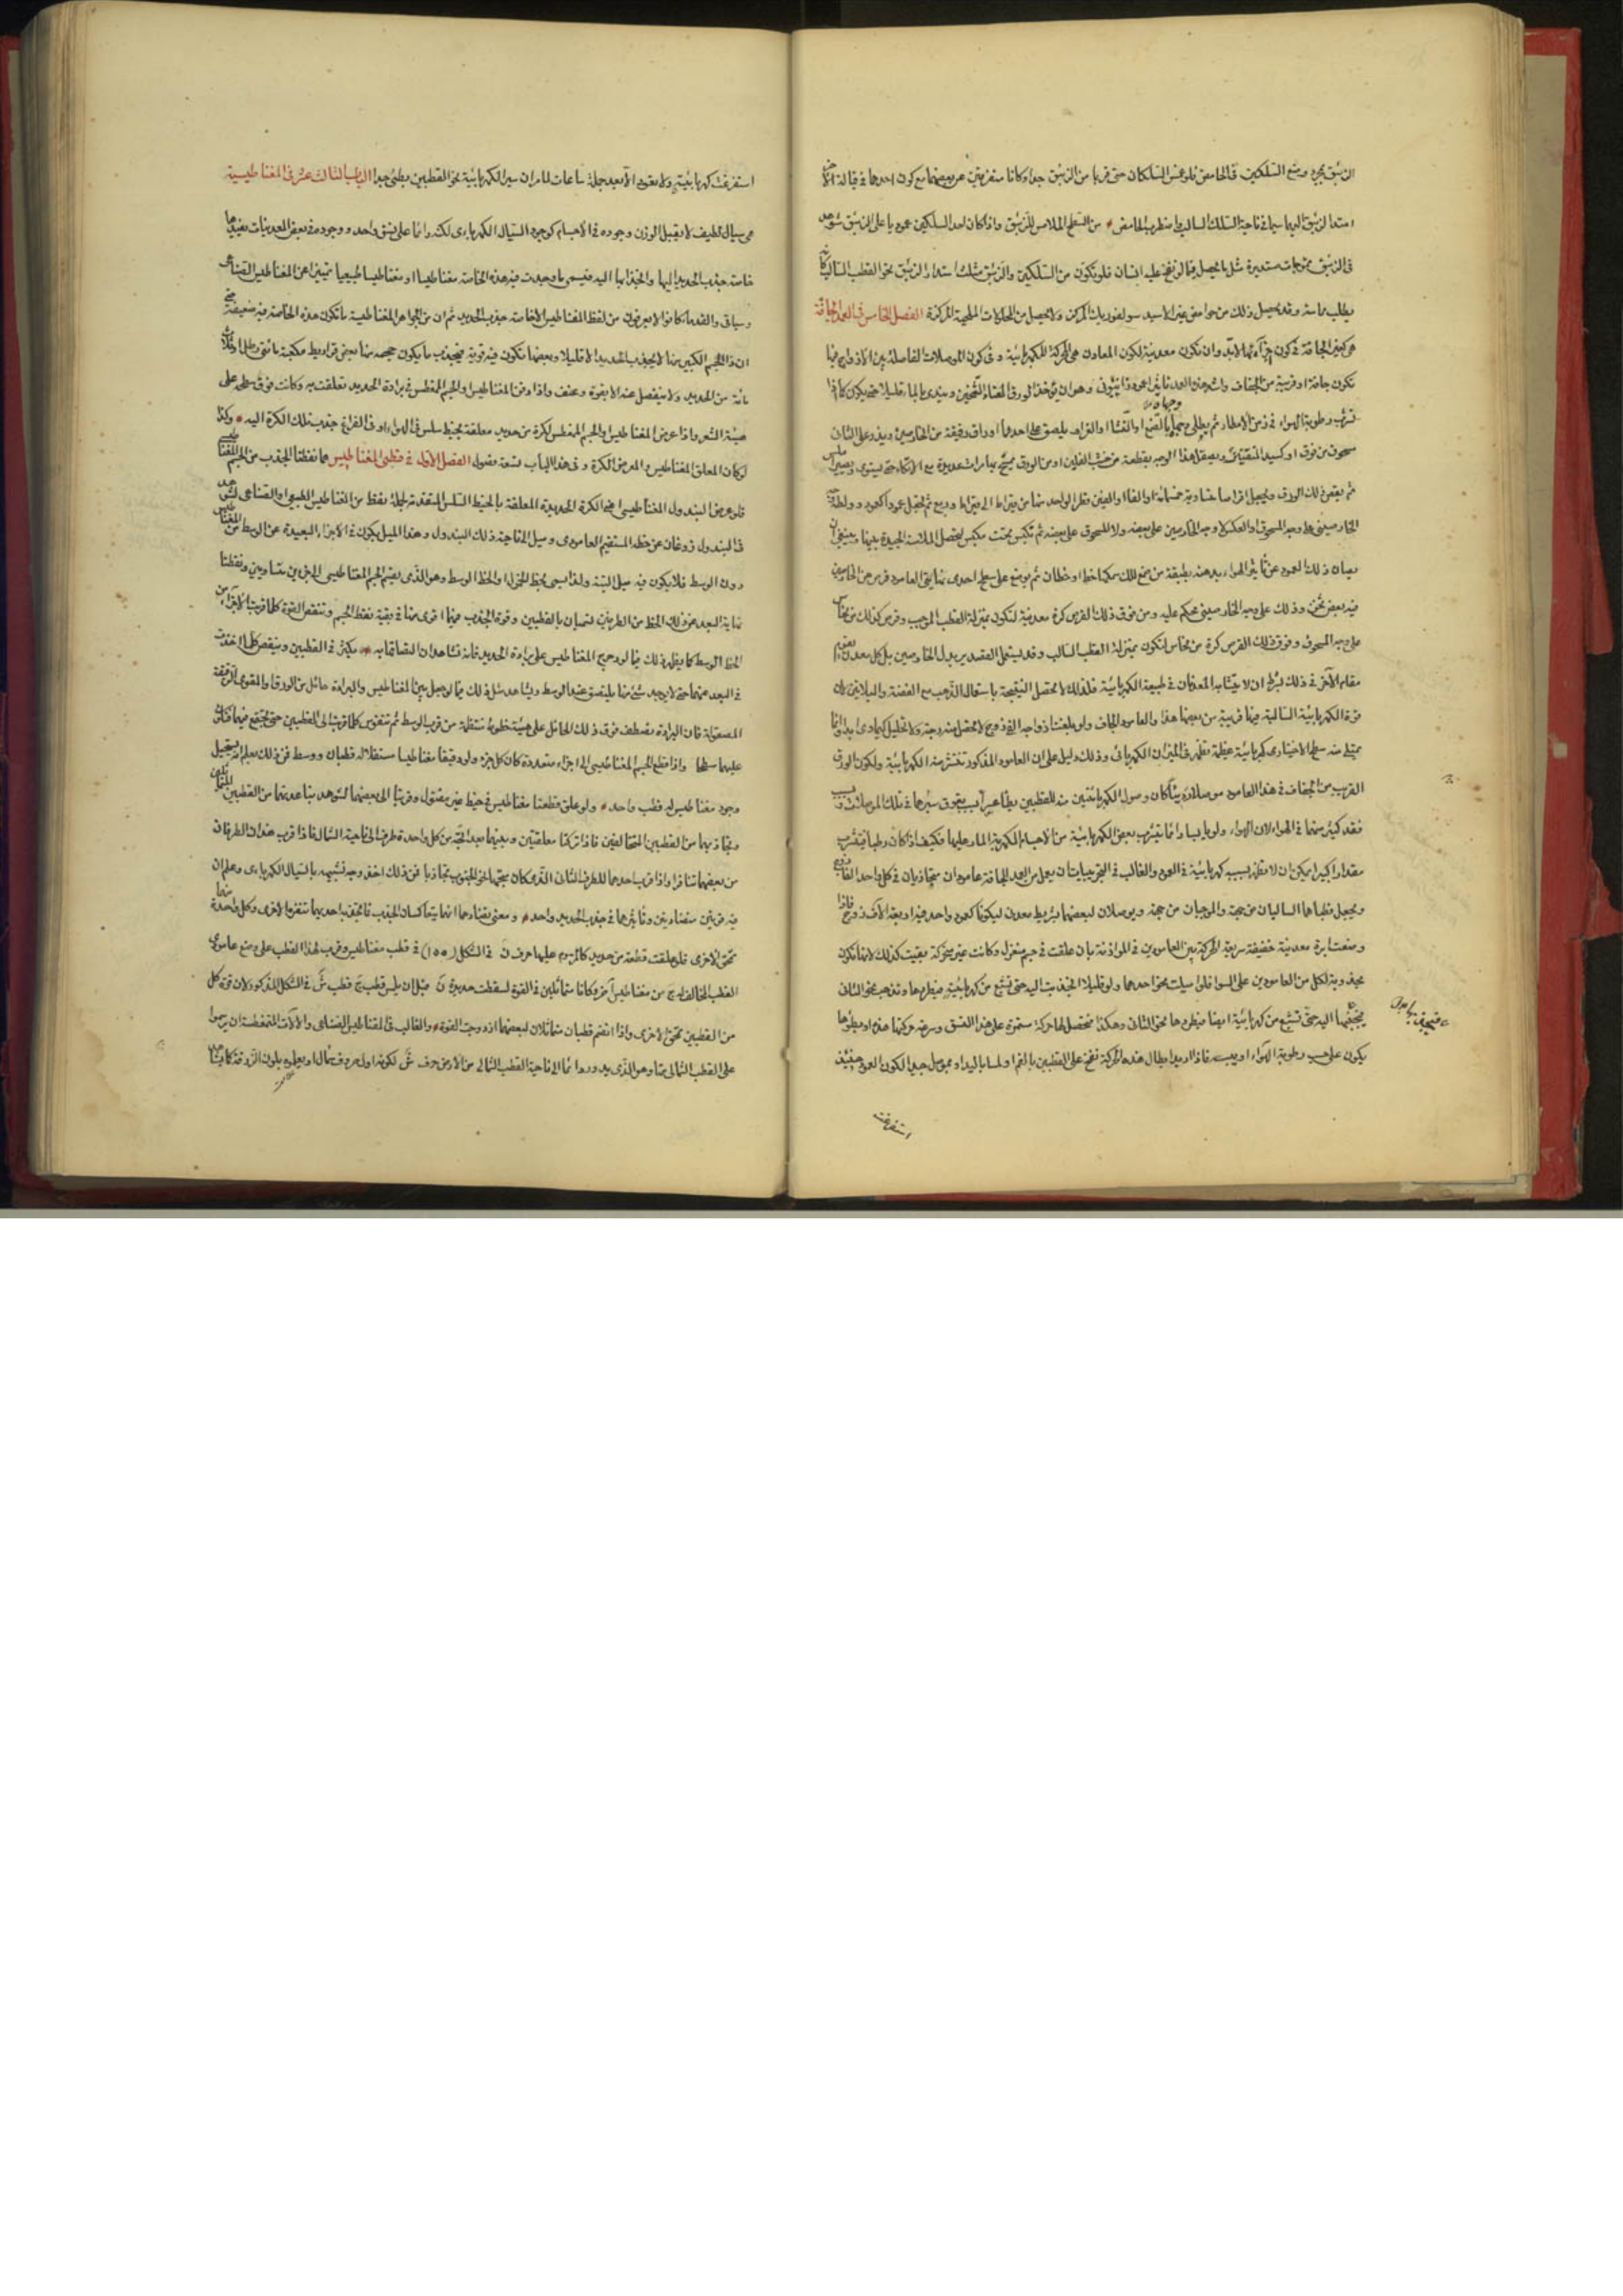 الزيبق بحرد وضع السلكين في الحامض فلو غمس السلكان حتى قربا من الزيبق جدا وكانا متفرقين عن بعضهما مع كون احدهما في قبالة الآخر
امتد الزيبق اليهما سيما في ناحية السلك السالب واضطرب الحامض من السطح الملامس للزيبق واذا كان احد السلكين عموديا على الزيبق شوهد
في الزيبق تموجات مستديرة مثل ما يحصل فيما لو نفخ عليه انسان فلو تكون من السلكين والزيبق مثلث استدار الزيبق نحو القطب السالب كأنه
يطلب مماسته وقد يحصل ذلك من حوامض غير الاسيد سولفوريك المركز ولا يحصل من المحلولات الملحية المركزة الفصل الخامس في العمد الجافة
هي كغير الجافة في كون اجزائها لابد وان تكون معدنية لكون المعادن هي المحركة للكهربائية وفي كون الموصلات الفاصلة بين الازواج فيها
تكون جافة او قريبة من الجفاف واشد هذه العمد تأثيرا عمود زانبوني وهو ان يؤخذ الورق المعتاد الثخين ويندى بالماء قليلا حتى يكون كما اذا
تشرب رطوبة الهواء في زمن الامطار ثم يطلى وجهها بالصمغ او النشا او الغراء يلصق على احدهما اوراق دقيقة من الخارصين ويذر على الثاني
مسحوق من فوق اوكسيد المنقنيز ويصقل هذا الوجه بقطعة من خشب الفلين او من الورق يمسح بها مرات عديدة مع الاتكاء حتى يستوي ويصير املس
ثم يقص ذلك الورق ويجعل اقراصا متساوية خمسمائة او الفا او الفين قطر الواحد منها من قيراط الى قيراط وربع ثم يجعل عمودا كعمود وولطا
الخارصيني على وجه المسحوق او العكس لا وجه الخارصين على بعضه ولا المسحوق على بعضه ثم تكبس تحت مكبس لتحصل الملامسة الجيدة بينها وينبغي ان
يصان ذلك العمود عن تأثير الهواء بدهنه بطبقة من صمغ اللك سمكها خط او خطان ثم يوضع على سطح احدى نهايتي العامود قرص من الخارصين
فيه بعض ثخن وذلك على وجه الخارصيني محكم عليه ومن فوق ذلك القرص كرة معدنية لتكون بمنزلة القطب الموجب وقرص كذلك من نحاس
على وجه المسحوق وفوق ذلك القرص كرة من نحاس لتكون بمنزلة القطب السالب وقد يستعمل القصدير بدل الخارصين بل كل معدن يقوم
مقام الآخر في ذلك بشرط ان لا يتشابه المعدنان في طبيعة الكهربائية فلذلك لا تحصل النتيجة باستعمال الذهب مع الفضة والبلاتين لان
قوة الكهربائية السالبة فيها قريبة من بعضها هذا والعامود الجاف ولو بلغت ازواجه الفي زوج لا تحصل منه رجة ولا تحليل كيماوي ابدا وانما
يمتلئ منه سطح الاختياري كهربائية عظيمة تظهر في الميزان الكهربائي وذلك دليل على ان العامود المذكور تنتشر منه الكهربائية ولكون الورق
القريب من الجفاف في هذا العامود موصلا رديئا كان وصول الكهربائيتين منه للقطبين بطئا عسرا بسبب تعوق سيرها في تلك الموصلات وبسبب
فقد كثير منها في الهواء لان الهواء ولو يابسا دائما يتشرب بعض الكهربائية من الاجسام المكهربة المار عليها فكيف اذا كان رطبا فيتشرب
مقدارا كبيرا يمكن ان لا تظهر بسببه كهربائية في العمود والغالب في التجريبيات ان يعمل من العمد الجافة عامودان متجاذبان في كل واحد الفا زوج
ويجعل قطباهما السالبان من جهة والموجبان من جهة ويوصلان لبعضهما بشريط معدن ليكونا كعمود واحد فيه اربعة الآف زوج فاذا
وضعت ابرة معدنية خفيفة سريعة الحركة بين العامودين في الموازنة بان علقت في جسم منعزل وكانت غير متحركة بقيت كذلك لانها تكون
مجذوبة لكل من العامودين على السوا فلو اميلت نحو احدهما ولو قليلا انجذبت اليه حتى تشبع من كهربائيته فيطردها وتذهب نحو الثاني
فيجذبها اليه حتى تشبع من كهربائيته ايضا فيطردها نحو الثاني وهكذا فتحصل لها حركة مستمرة على هذا النسق وسرعة حركتها هذه او بطؤها
يكون على حسب رطوبة الهواء او يبسه فاذا اريد ابطال هذه الحركة نفخ على القطبين بالفم او لمسا باليد او بموصل جيد لكون العمود حينئذ
استفرغت
استفرغت كهربائيته ولا تعود الا بعد جملة ساعات لما مر ان سير الكهربائية نحو القطبين بطئ جدا الباب الثالث عشر في المغناطيسية
هي سيال لطيف لا يقبل الوزن وجوده في الاجسام كوجود السيال الكهربائي لكنه دائما على نسق واحد ووجوده في بعض المعدنيات يفيدها
خاصة جذب الحديد اليها وانجذابها اليه فيسمى ما وجدت فيه هذه الخاصة مغناطيسا او مغناطيسا طبيعيا تمييزا عن المغناطيس الصناعي
وسياتي والقدماء كانوا لا يعرفون من لفظ المغناطيس الا خاصة جذب الحديد ثم ان من الجواهر المغناطيسية ما تكون هذه الخاصة فيه ضعيفة حتى
ان ذا الحجم الكبير منها لا يجذب الحديد الا قليلا وبعضها تكون فيه قوية فيجذب ما يكون حجمه منها بعض قراريط مكعبة مائتي رطل او ثلاث
مائة من الحديد ولا ينفصل عنه الا بقوة وعنف واذا دفن المغناطيس او الجسم الممغطس في برادة الحديد تعلقت به وكانت فوق سطحه على
هيئة الشعر واذا عرض المغناطيس او الجسم الممغطس لكرة من حديد معلقة بخيط سلس في الهواء او في الفراغ جذب تلك الكرة اليه وكذا
لو كان المعلق المغناطيس والمعرض الكرة وفي هذا الباب تسعة فصول الفصل الاول في قطبي المغناطيس هما نقطتا الجذب من الجسم المغناطيسي
فلو عرض البندول المغناطيسي اعني الكرة الحديدية المعلقة بالخيط السلس المتقدمة لجملة نقط من المغناطيس الطبيعي او الصناعي لشوهد
في البندول زوغان عن خطه المستقيم العامودي وميل الى ناحية ذلك البندول وهذا الميل يكون في الاجزاء البعيدة عن الوسط من المغناطيس
دون الوسط فلا يكون فيه ميل البتة ولذا يسمى بخط الخمولة او الخط الوسط وهو الذي يقسم الجسم المغناطيسي الى جزئين متساويين ونقطتا
نهاية البعد عن ذلك الخط من الطرفين تسميان بالقطبين وقوة الجذب فيهما اقوى منها في بقية نقط الجسم وتنقص القوة كلما قربت الاجزاء من
الخط الوسط كما يظهر ذلك فيما لو دحرج المغناطيس على برادة الحديد فانه تشاهد ان التصاقها به يكثر في القطبين وينقص كلما اخذت
في البعد عنهما حتى لا يوجد شئ منها يلتصق عند الوسط ويشاهد مثل ذلك فيما لو جعل بين المغناطيس والبرادة حائل من الورق او المقوى الرقيقة
المصقولة فان البرادة تصطف فوق ذلك الحائل على هيئة خطوط منتظمة من قرب الوسط ثم تتقوس كلما قربت الى القطبين حتى تجتمع فيهما
عليهما سطحا واذا قطع الجسم المغناطيسي الى اجزاء متعددة كان كل جزء ولو دقيقا مغناطيسا مستقلا له قطبان ووسط فمن ذلك يعلم انه يستحيل
وجود مغناطيس له قطب واحد ولو علق قطعتا مغناطيس في خيط غير مفتول وقربتا الى بعضهما لشوهد تباعدهما من القطبين المتماثلين
وتجاذبهما من القطبين المتخالفين فاذا تركتا معلقتين وبينهما بعد اتجه من كل واحدة طرف الى ناحية الشمال فاذا قرب هذان الطرفان
من بعضهما تنافرا واذا قرب احدهما للطرف الثاني الذي كان متجها نحو الجنوب تجاذبا فمن ذلك اخذ وجه تشبيهه بالسيال الكهربائي وعلم ان
فيه قوتين متضادتين وتأثيرهما في جذب الحديد واحد ومعنى تضادهما انهما يتعاكسان الجذب فما تجذبه احديهما تنفره الاخرى وكل واحدة منهما
تمحق الاخرى فلو علقت قطعة من حديد كالمرسوم عليها حرف ن في الشكل (١٥٥) في قطب مغناطيس وقرب لهذا القطب على وضع عامودي
القطب المخالف له ج من مغناطيس آخر وكانا متماثلين في القوة لسقطت حديدة ن قبل ان يلمس قطب ج قطب ش في الشكل المذكور لان قوة كل
من القطبين تمحق الاخرى واذا انضم قطبان متماثلان لبعضهما ازدوجت القوة والغالب في المغناطيس الصناعي والآلات الممغطسة ان يرسموا
على القطب الشمالي منها وهو الذي يدور دائما الى ناحية القطب الشمالي من الارض حرف ش لكونه اول حروف شمال او يعلموه بلون الزرقة كما يشاهد